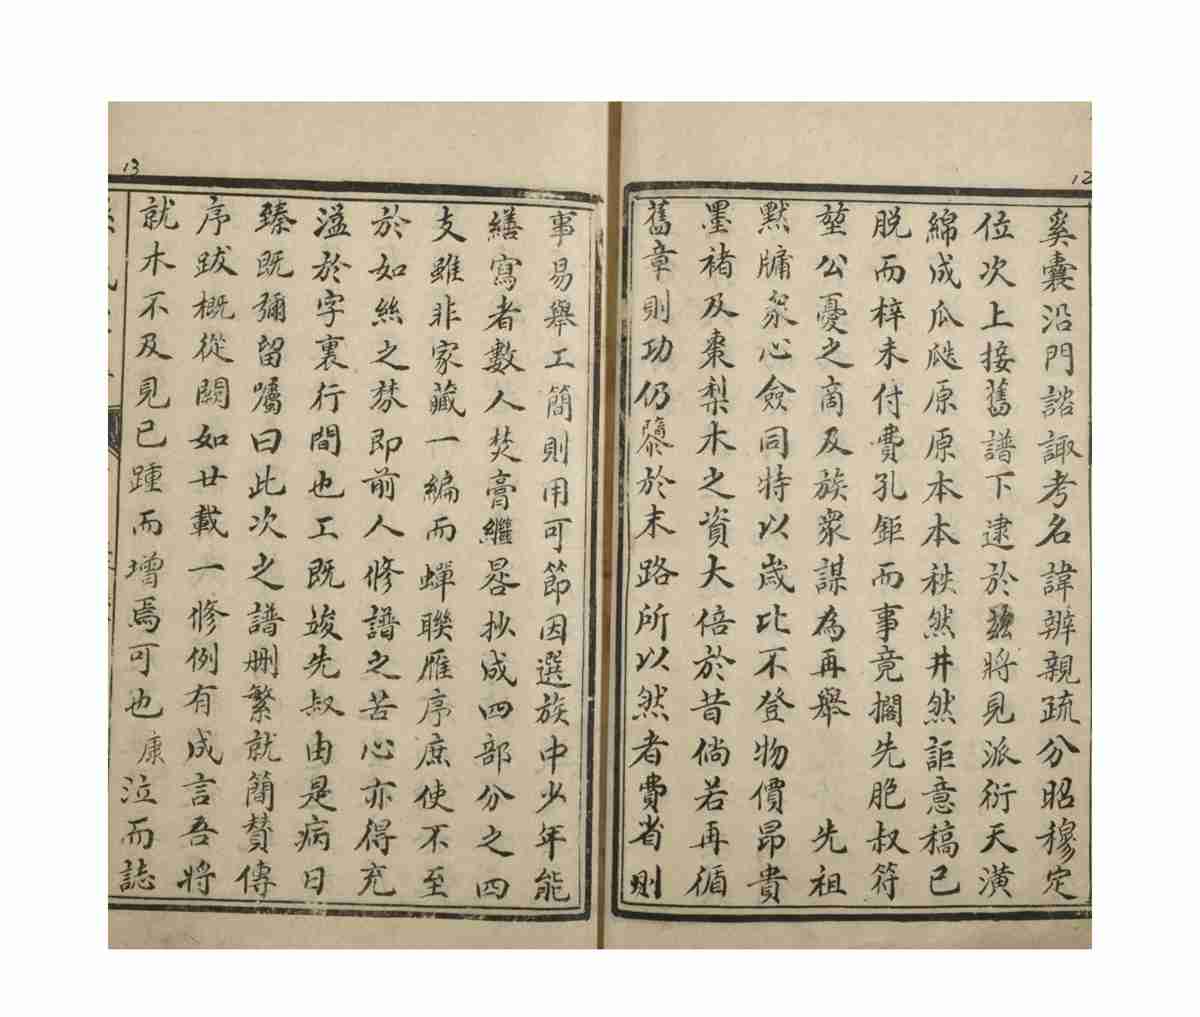 12
奚囊沿門諮諏考名諱辨親疏分昭穆定
位次上接舊譜下逮於茲將見派衍天潢
綿成瓜瓞原原本本秩然井然詎意稿已
脱而梓未付費孔鉅而事竟擱先胞叔符
堃公憂之商及族眾謀為再舉 先祖
默牖衆心僉同特以歲比不登物價昂貴
墨褚及棗梨木之資大倍於昔倘若再循
舊章則功仍隳於末路所以然者費省則
13
事易舉工簡則用可節因選族中少年能
繕寫者數人焚膏繼晷抄成四部分之四
支雖非家藏一編而蟬聯雁序庶使不至
於如絲之棼即前人修譜之苦心亦得充
溢於字裏行間也工既竣先叔由是病日
臻既彌留囑曰此次之譜刪繁就簡贊傳
序跋概從闕如廿載一修例有成言吾將
就木不及見已踵而增焉可也康泣而誌